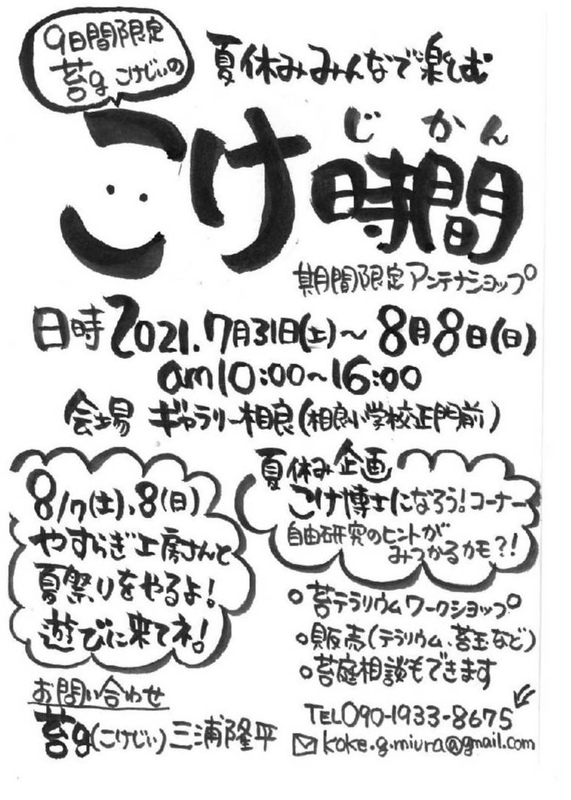 9日間限定
苔g こけじいの
夏休みみんなで楽しむ
こけ時間
じかん
期間限定アンテナショップ
日時 2021.7月31日(土)～8月8日(日)
am10:00～16:00
会場 ギャラリー相良(相良小学校正門前)
8/7(土)、8(日)
やすらぎ工房さんと
夏祭りをやるよ!
遊びに来てネ!
夏休み企画
こけ博士になろう!コーナー
自由研究のヒントが
みつかるかも?!
○苔テラリウムワークショップ
○販売(テラリウム、苔玉など)
○苔庭相談もできます
お問い合わせ
苔g(こけじい)三浦隆平
TEL090-1933-8675
koke.g.miura@gmail.com